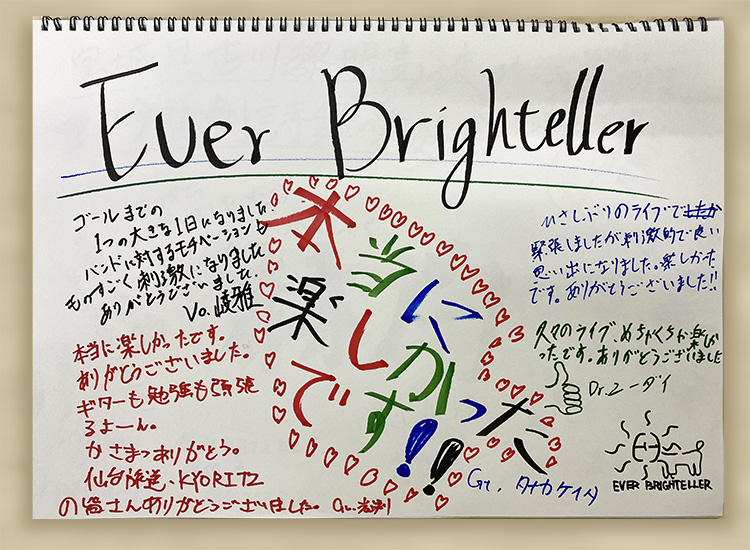 Ever Brighteller
ゴールまでの
1つの大きな1日になりました.
バンドに対するモチベーションも
ものすごく刺激になりました
ありがとうございました.
Vo.
本当に
楽しかった
です!!
ひさしぶりのライブで
緊張しましたが刺激的で良い
思い出になりました。楽しかった
です。ありがとうございました!!
久々のライブ、めちゃくちゃ楽し
かったです。ありがとうございました
Dr.ユーダイ
本当に楽しかったです。
ありがとうございました。
ギターも勉強も頑張
るよーん。
かさまつありがとう。
仙台放送、KYORITZ
の皆さんありがとうございました。 Gu.
Gt. タナカケイタ
EVER BRIGHTELLER